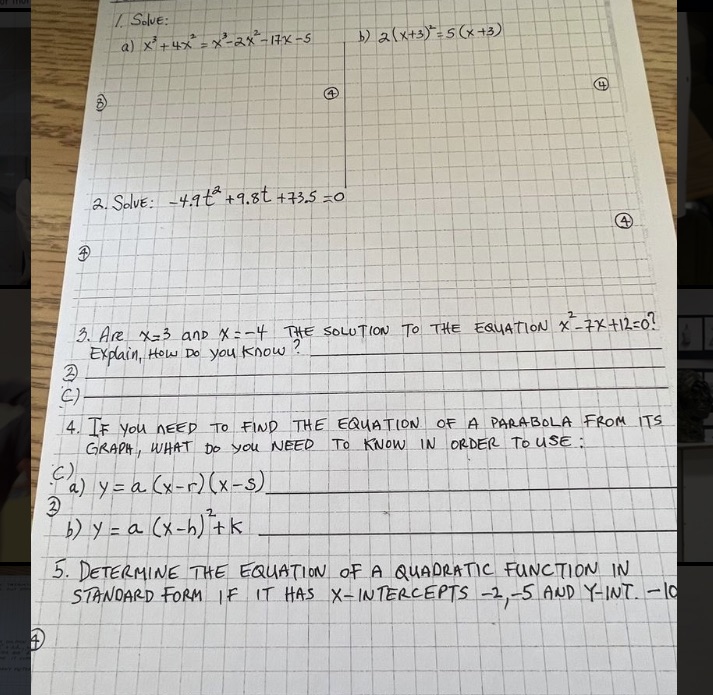 1. Solve:
a) x³+4x²=x³-2x²-17x-5
b) 2(x+3)²=5(x+3)
8
4
4
2. Solve: -4.9t²+9.8t+73.5=0
4
4
3. Are x=3 and x=-4 THE SOLUTION TO THE EQUATION x²-7x+12=0?
Explain, How Do you know?
2
C)
4. IF you NEED TO FIND THE EQUATION OF A PARABOLA FROM ITS
GRAPH, WHAT Do you NEED TO KNOW IN ORDER TO USE:
C)
a) y=a(x-r)(x-s)
3
b) y=a(x-h)²+k
5. DETERMINE THE EQUATION OF A QUADRATIC FUNCTION IN
STANDARD FORM IF IT HAS X-INTERCEPTS -2,-5 AND Y-INT. -10
4